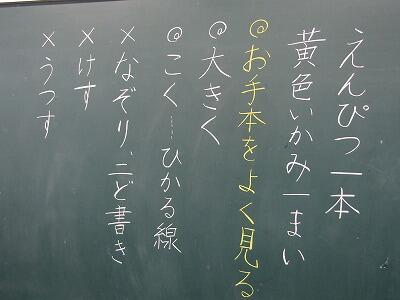 えんぴつ一本
黄色いかみ一まい
◎お手本をよく見る
◎大きく
◎こく……ひかる線
×なぞり、二ど書き
×けす
×うつす